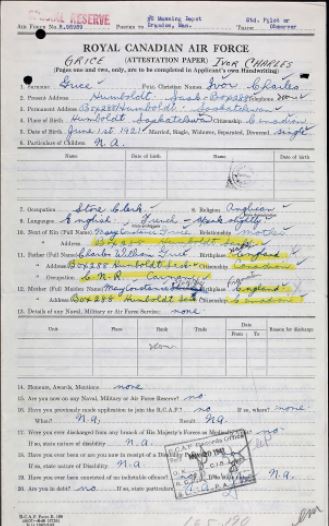 SPECIAL RESERVE
#2 Manning Depot
Std. Pilot or
AIR FORCE No.
POSTED TO Brandon, Man.
Observer
ROYAL CANADIAN AIR FORCE
GRICE (ATTESTATION PAPER) IVOR CHARLES
(Pages one and two, only, are to be completed in Applicant's own Handwriting)
1. Surname: Grice Full Christian Names: Ivor Charles
2. Present Address Humboldt Sask - Box 288 Telephone none
3. Permanent Address Box 288 Humboldt Saskatchewan
4. Place of Birth Humboldt Saskatchewan Citizenship Canadian
5. Date of Birth June 1st 1921 Married, Single, Widower, Separated, Divorced Single
6. Particulars of Children N.a.
Name Date of birth Name Date of Birth
7. Occupation Store Clerk 8. Religion Anglican
9. Languages English French - speak slightly
10. Next of Kin (Full Name) May Constance Grice Relationship mother
Address Box 288 Humboldt Sask
11. Father (Full Name) Charles William Grice Birthplace England
Address Box 288 Humboldt Sask Citizenship Canadian
Occupation C.N.R. Carman
12. Mother (Full Maiden Name) May Constance Birthplace England
Address Box 288 Humboldt Sask Citizenship Canadian
13. Details of any Naval, Military or Air Force Service: none
Unit Place Rank Trade Date Reason for discharge
From To
None
14. Honours, Awards, Mentions none
15. Are you now on any Naval, Military or Air Force Reserve? no
16. Have you previously made application to join the R.C.A.F.? no If so, where? none
What? N.a. Result N.a.
17. Were you ever discharged from any branch of His Majesty's Forces as Medically Unfit? no
If so, state nature of disability n.a.
18. Have you ever been or are you now in receipt of a Disability Pension? no
If so, state nature of Disability N.a.
19. Have you ever been convicted of an indictable offence? no
20. Are you in debt? no If so, state particulars n.a.
R.C.A.F. Records Office